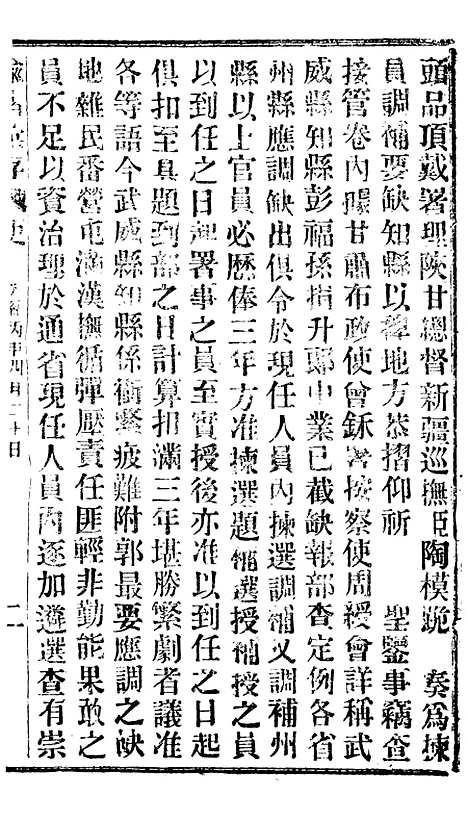 頭品頂戴署理陝甘總督新疆巡撫臣陶模跪　奏爲揀
員調補要缺知縣以裨地方恭摺仰祈　聖鑒事竊查
接管卷內據甘肅布政使曾鉌署按察使周綬會詳稱武
威縣知縣彭福孫指升郎中業已截缺報部查定例各省
州縣應調缺出俱令於現任人員內揀選調補又調補州
縣以上官員必歷俸三年方准揀選題補選授補授之員
以到任之日起署事之員至實授後亦准以到任之日起
俱扣至具題到部之日計算扣滿三年堪勝繁劇者議准
各等語今武威縣知縣係衝繁疲難附郭最要應調之缺
地雜民番營屯滿漢撫循彈壓責任匪輕非勤能果敢之
員不足以資治理於通省現任人員內逐加遴選查有崇